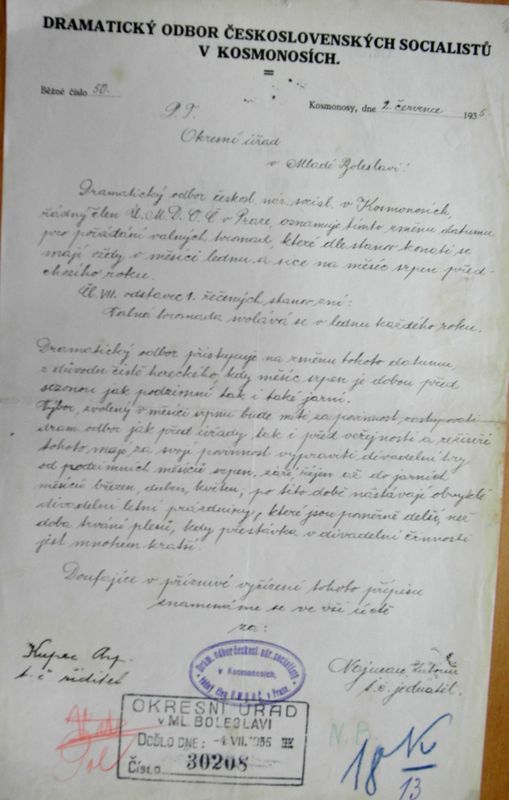 DRAMATICKÝ ODBOR ČESKOSLOVENSKÝCH SOCIALISTŮ
V KOSMONOSÍCH.
Běžné číslo 50.
Kosmonosy, dne 2. července 1935.
P.T.
Okresní úřad
v Mladé Boleslavi!
Dramatický odbor českosl. nár. social. v Kosmonosích,
řádný člen Ú.M.D.O.Č. v Praze, oznamuje tímto změnu datumu
pro pořádání valných hromad, které dle stanov konati se
mají vždy v měsíci lednu a sice na měsíc srpen před-
chozího roku.
Čl. VII. odstavec 1. řečených stanov zní:
Valná hromada svolává se v lednu každého roku.
Dramatický odbor přistupuje na změnu tohoto datumu,
z důvodu čistě hereckého, kdy měsíc srpen je dobou před
sezonou jak podzimní tak i také jarní.
Výbor, zvolený v měsíci srpnu bude míti za povinnost zastupovati
dram. odbor jak před úřady, tak i před veřejností a režiseři
tohoto mají za svoji povinnost vypraviti divadelní hry
od podzimních měsíců srpen, září, říjen až do jarních
měsíců březen, duben, květen, po této době nastávají obvyklé
divadelní letní prázdniny, které jsou poměrně delší, než
doba trvání plesů, kdy přestávka v divadelní činnosti
jest mnohem kratší.
Doufajíce v příznivé vyřízení tohoto přípisu
znamenáme se ve vší úctě
za:
Kupec
t.č. ředitel
Dram. odbor českosl. nár. socialistů
v Kosmonosích,
řádný člen Ú.M.D.O.Č. v Praze.
t.č. jednatel.
OKRESNÍ ÚŘAD
V ML. BOLESLAVI
DOŠLO DNE: -4. VII. 1935
ČÍSLO 30208
N.B.
18 K
13